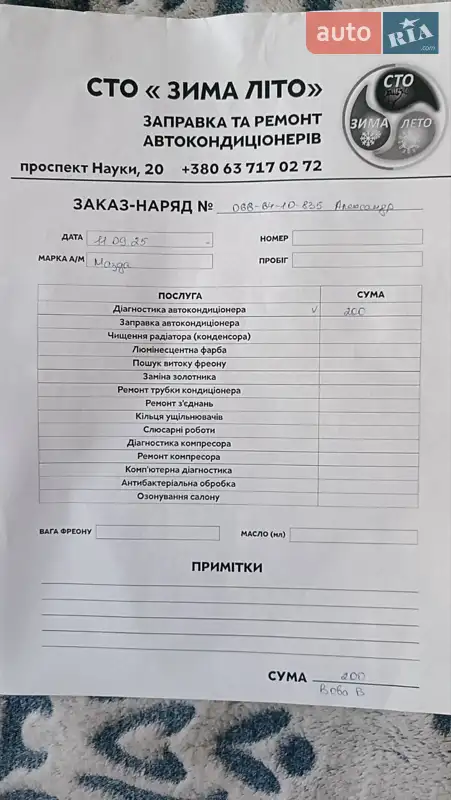 auto RIA .com
СТО « ЗИМА ЛІТО»
СТО
ЗИМА ЛЕТО
ЗАПРАВКА ТА РЕМОНТ
АВТОКОНДИЦІОНЕРІВ
проспект Науки, 20 +380 63 717 02 72
ЗАКАЗ-НАРЯД № 068-64-10-835 Александр
ДАТА 11.09.25 НОМЕР
МАРКА А/М Мазда ПРОБІГ
ПОСЛУГА СУМА
Діагностика автокондиціонера V 200
Заправка автокондиціонера
Чищення радіатора (конденсора)
Люмінесцентна фарба
Пошук витоку фреону
Заміна золотника
Ремонт трубки кондиціонера
Ремонт з'єднань
Кільця ущільнювачів
Слюсарні роботи
Діагностика компресора
Ремонт компресора
Комп'ютерна діагностика
Антибактеріальна обробка
Озонування салону
ВАГА ФРЕОНУ МАСЛО (мл)
ПРИМІТКИ
СУМА 200
Вова В